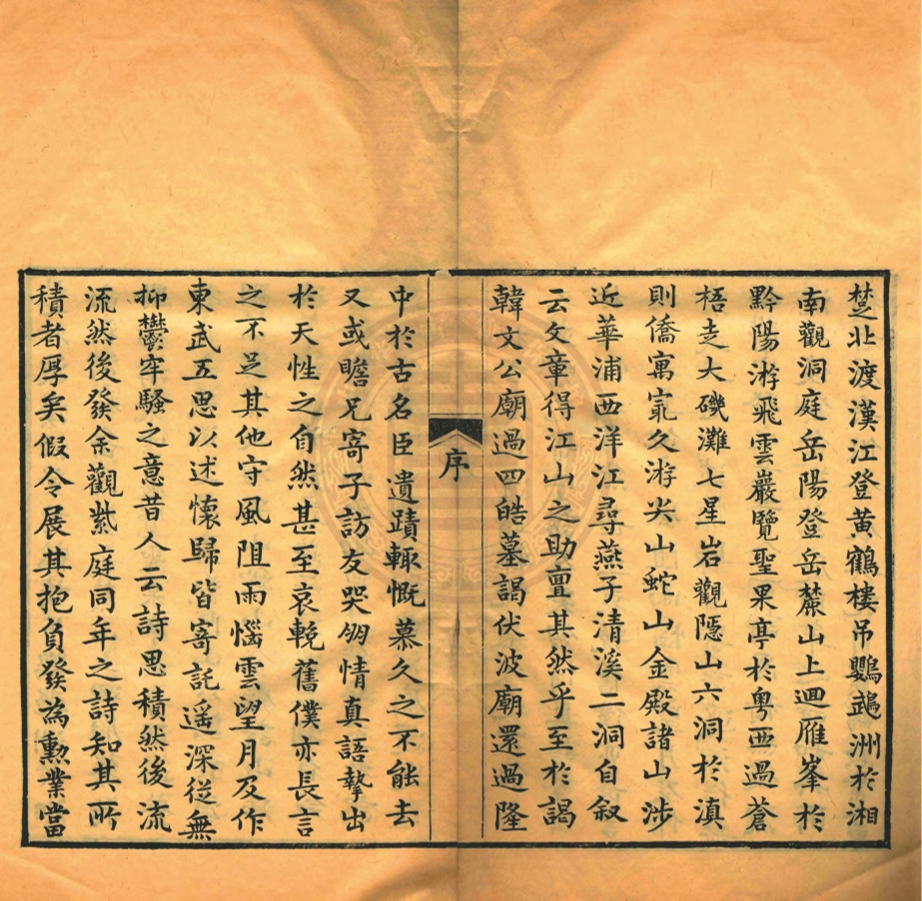 楚北渡漢江登黄鶴樓吊鸚鵡洲於湘
南觀洞庭岳陽登岳麓山上迴雁峯於
黔陽游飛雲巖覽聖果亭於粤西過蒼
梧走大磯灘七星岩觀隱山六洞於滇
則僑寓㝡久游尖山蛇山金殿諸山涉
近華浦西洋江尋燕子清溪二洞自叙
云文章得江山之助亶其然乎至於謁
韓文公廟過四皓墓謁伏波廟還過隆
序
中於古名臣遺蹟輒慨慕久之不能去
又或瞻兄寄子訪友哭朋情真語摯出
於天性之自然甚至哀輓舊僕亦長言
之不足其他守風阻雨惱雲望月及作
東武五思以述懷歸皆寄託遥深從無
抑鬱牢騷之意昔人云詩思積然後流
流然後發余觀紫庭同年之詩知其所
積者厚矣假令展其抱負發為勲業當